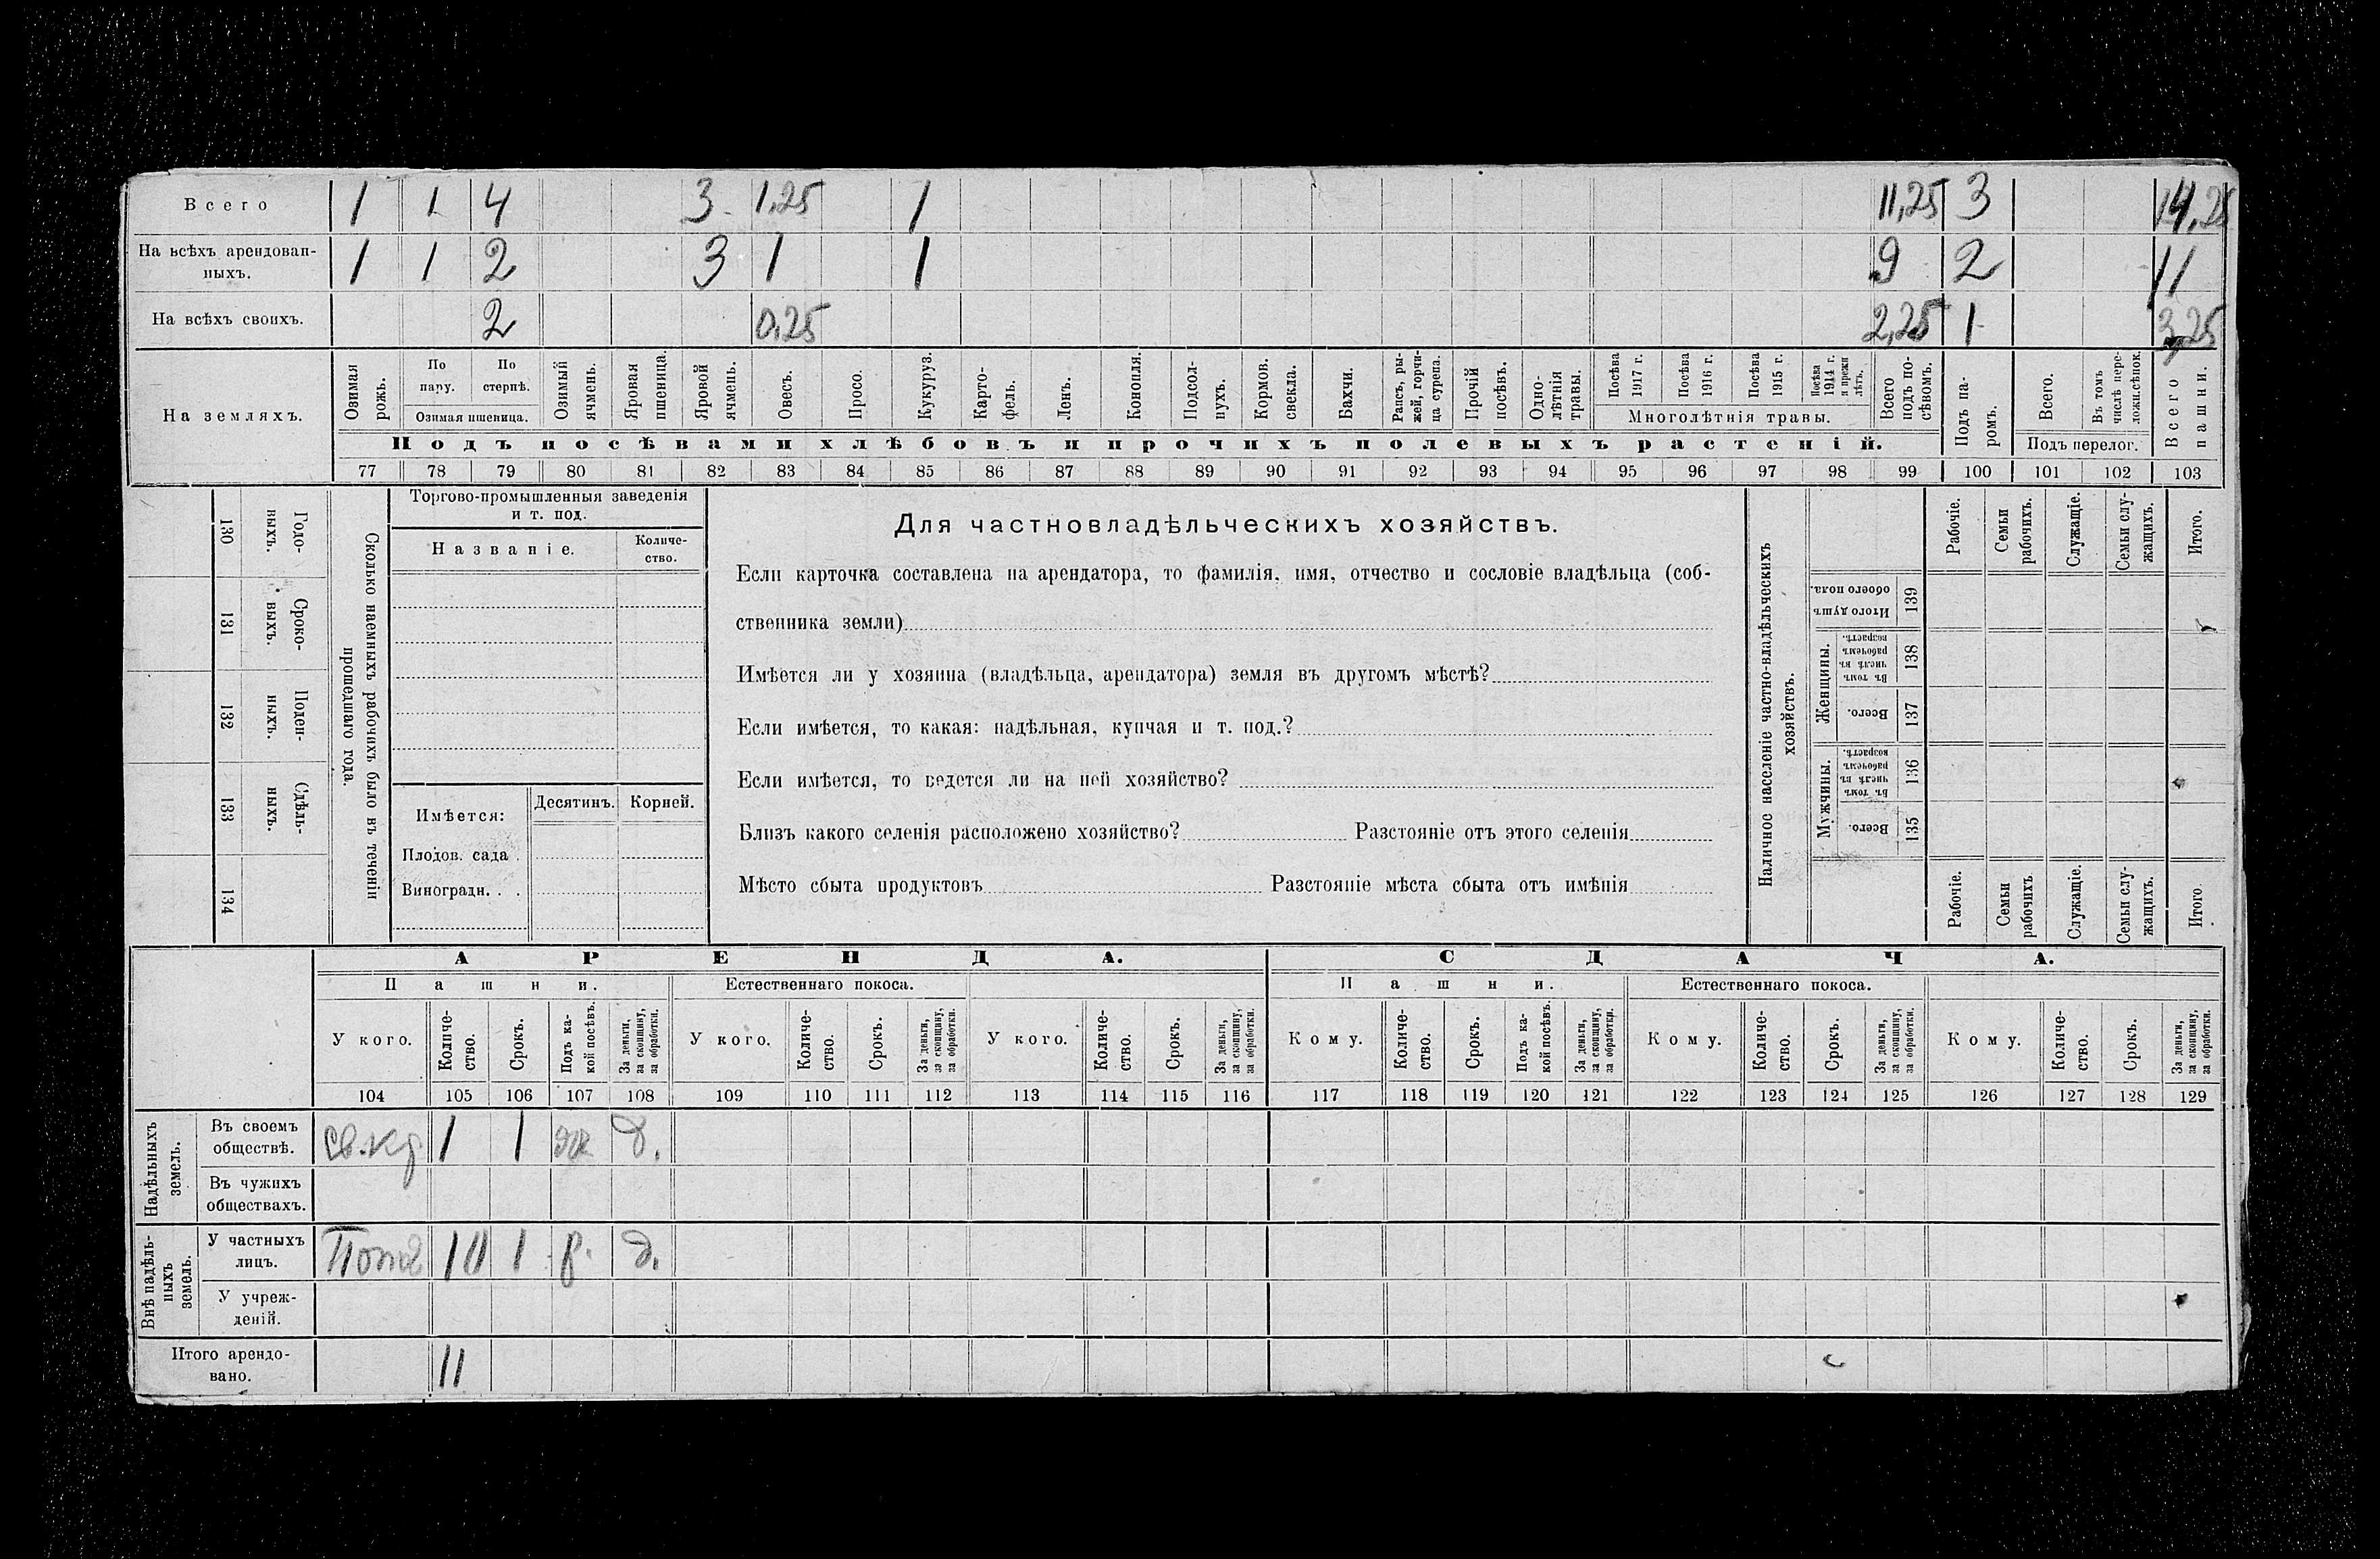 Всего 1 1 4 3 1,25 1 11,25 3 14,25
На всѣхъ арендован-
ныхъ. 1 1 2 3 1 1 9 2 11
На всѣхъ своихъ. 2 0,25 2,25 1 3,25
На земляхъ.
Озимая рожь.
По пару.
По стернѣ.
Озимая пшеница.
Озимый ячмень.
Яровая пшеница.
Яровой ячмень.
Овесъ.
Просо.
Кукуруз.
Карто-
фель.
Ленъ.
Конопля.
Подсол-
нухъ.
Кормов. свекла.
Бахчи.
Рапсъ, ры-
жей, горчи-
ца сурепа.
Прочій посѣвъ.
Одно-
лѣтнія травы.
Посѣва 1917 г.
Посѣва 1916 г.
Посѣва 1915 г.
Посѣва 1914 г. и прежн лѣтъ.
Многолѣтнія травы.
Всего подъ по-
сѣвомъ.
Подъ па-
ромъ.
Всего.
Въ томъ числѣ пере-
ложн.сѣнок.
Подъ перелог.
Всего пашни.
Подъ посѣвами хлѣбовъ и прочихъ полевыхъ растеній.
77 78 79 80 81 82 83 84 85 86 87 88 89 90 91 92 93 94 95 96 97 98 99 100 101 102 103
130 Годо-
выхъ.
131 Сроко-
выхъ.
132 Поден-
ныхъ.
133 Сдѣль-
ныхъ.
134
Сколько наемныхъ рабочихъ было въ теченіи
прошедшаго года.
Торгово-промышленныя заведенія
и т. под.
Названіе.
Количе-
ство.
Имѣется:
Десятинъ.
Корней.
Плодов. сада .
Виноградн. . .
Для частновладѣльческихъ хозяйствъ.
Если карточка составлена на арендатора, то фамилія, имя, отчество и сословіе владѣльца (соб-
ственника земли)
Имѣется ли у хозяина (владѣльца, арендатора) земля въ другомъ мѣстѣ?
Если имѣется, то какая: надѣльная, купчая и т. под.?
Если имѣется, то ведется ли на ней хозяйство?
Близъ какого селенія расположено хозяйство? Разстояніе отъ этого селенія
Мѣсто сбыта продуктовъ Разстояніе мѣста сбыта отъ имѣнія
Наличное населеніе частно-владѣльческихъ
хозяйствъ.
Рабочіе.
Семьи рабочихъ.
Служащіе.
Семьи слу-
жащихъ.
Итого.
Итого душъ обоего пола. 139
Женщины.
Въ томъ числѣ въ рабочемъ возрастѣ. 138
Всего. 137
Мужчины.
Въ томъ числѣ въ рабочемъ возрастѣ. 136
Всего. 135
Рабочіе.
Семьи рабочихъ
Служащіе.
Семьи слу-
жащихъ.
Итого
АРЕНДА. СДАЧА.
Пашни. Естественнаго покоса. Пашни. Естественнаго покоса.
У кого.
Количе-
ство.
Срокъ.
Подъ ка-
кой посѣвъ.
За деньги,
за скопщину,
за обработки.
У кого.
Количе-
ство.
Срокъ.
За деньги,
за скопщину,
за обработки.
У кого.
Количе-
ство.
Срокъ.
За деньги,
за скопщину,
за обработки.
Кому.
Количе-
ство.
Срокъ.
Подъ ка-
кой посѣвъ.
За деньги,
за скопщину,
за обработки.
Кому.
Количе-
ство.
Срокъ.
За деньги,
за скопщину,
за обработки.
Кому.
Количе-
ство.
Срокъ.
За деньги,
за скопщину,
за обработки.
104 105 106 107 108 109 110 111 112 113 114 115 116 117 118 119 120 121 122 123 124 125 126 127 128 129
Надѣльныхъ
земель.
Въ своемъ
обществѣ. 1 1 д.
Въ чужихъ
обществахъ.
Внѣ надѣль-
ныхъ
земель.
У частныхъ
лицъ. 10 1 р. д.
У учреж-
деній.
Итого арендо-
вано. 11